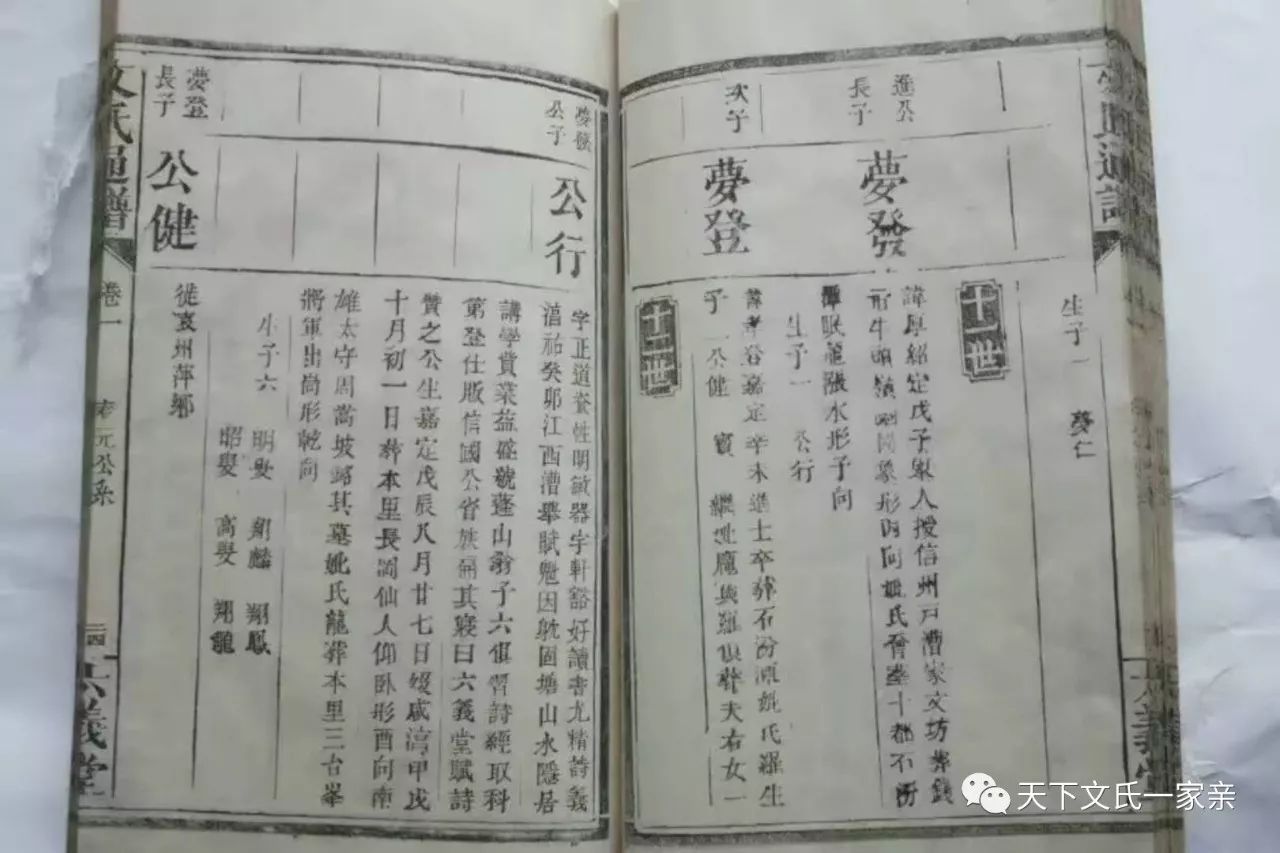 生子一 夢仁
十一世
進公
長子
夢發
諱厚紹定戊子舉人授信州戸漕家文坊葬錢
形牛頭嶺 象形丙向妣氏晉葬十都不
渾眠龍漲水形子向
生子一 公行
次子
夢登
諱孝登嘉定辛未進士卒葬石 源妣氏羅生
子一公健 實 繼妣龐與羅俱葬夫右女一
十二世
夢發
公子
公行
字正道資性明敏器宇軒豁好讀書尤精詩義
淳祐癸卯江西漕舉賦魁因躭固塘山水隱居
講學賞業益盛號蓬山翁子六俱習詩經取科
第登仕版信國公省族扁其寢曰六義堂賦詩
贊之公生嘉定戊辰八月廿七日歿咸淳甲戌
十月初一日葬本里長岡仙人仰臥形酉向南
雄太守周嵩坡銘其墓妣氏龍葬本里三台峯
將軍出崗形乾向
生子六 明叟 翔麟 翔鳳
昭叟 高叟 翔龍
夢登
長子
公健
徙袁州萍鄉
文氏通譜
卷一
元公系
六義堂
天下文氏一家亲